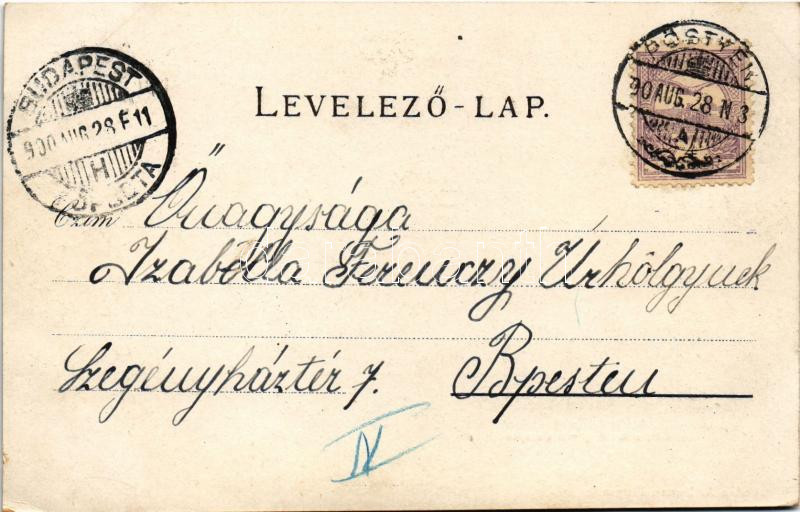 BUDAPEST
900 AUG. 28 F 11
H
FŐPOSTA
PÖSTYÉN
900 AUG. 28 N 3
A
LEVELEZŐ-LAP.
Czím Őnagysága
Izabella Ferenczy Úrhölgynek
Szegényháztér 7. Bpesten
IV